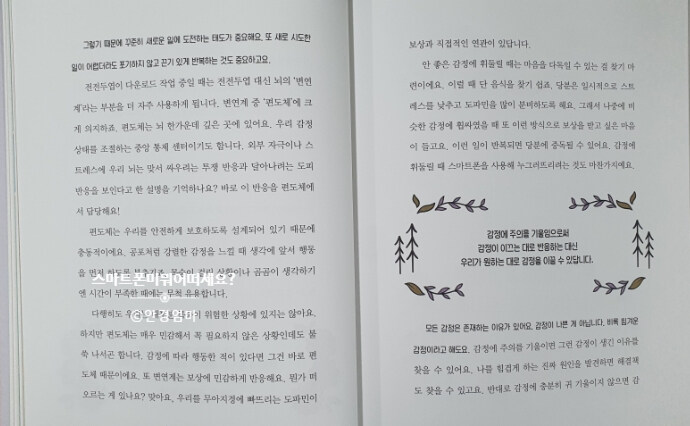 그렇기 때문에 꾸준히 새로운 일에 도전하는 태도가 중요해요. 또 새로 시도한
일이 어렵더라도 포기하지 않고 끈기 있게 반복하는 것도 중요하고요.
전전두엽이 다운로드 작업 중일 때는 전전두엽 대신 뇌의 '변연
계'라는 부분을 더 자주 사용하게 됩니다. 변연계 중 '편도체'에 크
게 의지하죠. 편도체는 뇌 한가운데 깊은 곳에 있어요. 우리 감정
상태를 조절하는 중앙 통제 센터이기도 합니다. 외부 자극이나 스
트레스에 우리 뇌는 맞서 싸우려는 투쟁 반응과 달아나려는 도피
반응을 보인다고 한 설명을 기억하나요? 바로 이 반응을 편도체에
서 담당해요!
편도체는 우리를 안전하게 보호하도록 설계되어 있기 때문에
충동적이에요. 공포처럼 강렬한 감정을 느낄 때 생각에 앞서 행동
을 먼저 하도록 상황이나 곰곰이 생각하기
엔 시간이 부족한 때에는 무척 유용합니다.
스마트폰미워어떠세요?
@안경엄마
다행히도 위험한 상황에 있지는 않아요.
하지만 편도체는 매우 민감해서 꼭 필요하지 않은 상황인데도 불
쑥 나서곤 합니다. 감정에 따라 행동한 적이 있다면 그건 바로 편
도체 때문이에요. 또 변연계는 보상에 민감하게 반응해요. 뭔가 떠
오르는 게 있나요? 맞아요, 우리를 무아지경에 빠뜨리는 도파민이
보상과 직접적인 연관이 있답니다.
안 좋은 감정에 휘둘릴 때는 마음을 다독일 수 있는 걸 찾기 마
련이에요. 이럴 때 단 음식을 찾기 쉽죠. 당분은 일시적으로 스트
레스를 낮추고 도파민을 많이 분비하도록 해요. 그래서 나중에 비
슷한 감정에 휩싸였을 때 또 이런 방식으로 보상을 받고 싶은 마음
이 들고요. 이런 일이 반복되면 당분에 중독될 수 있어요. 감정에
휘둘릴 때 스마트폰을 사용해 누그러뜨리려는 것도 마찬가지예요.
감정에 주의를 기울임으로써
감정이 이끄는 대로 반응하는 대신
우리가 원하는 대로 감정을 이끌 수 있답니다.
모든 감정은 존재하는 이유가 있어요. 감정이 나쁜 게 아닙니다. 비록 힘겨운
감정이라고 해도요. 감정에 주의를 기울이면 그런 감정이 생긴 이유를
찾을 수 있어요. 나를 힘겹게 하는 진짜 원인을 발견하면 해결책
도 찾을 수 있고요. 반대로 감정에 충분히 귀 기울이지 않으면 감